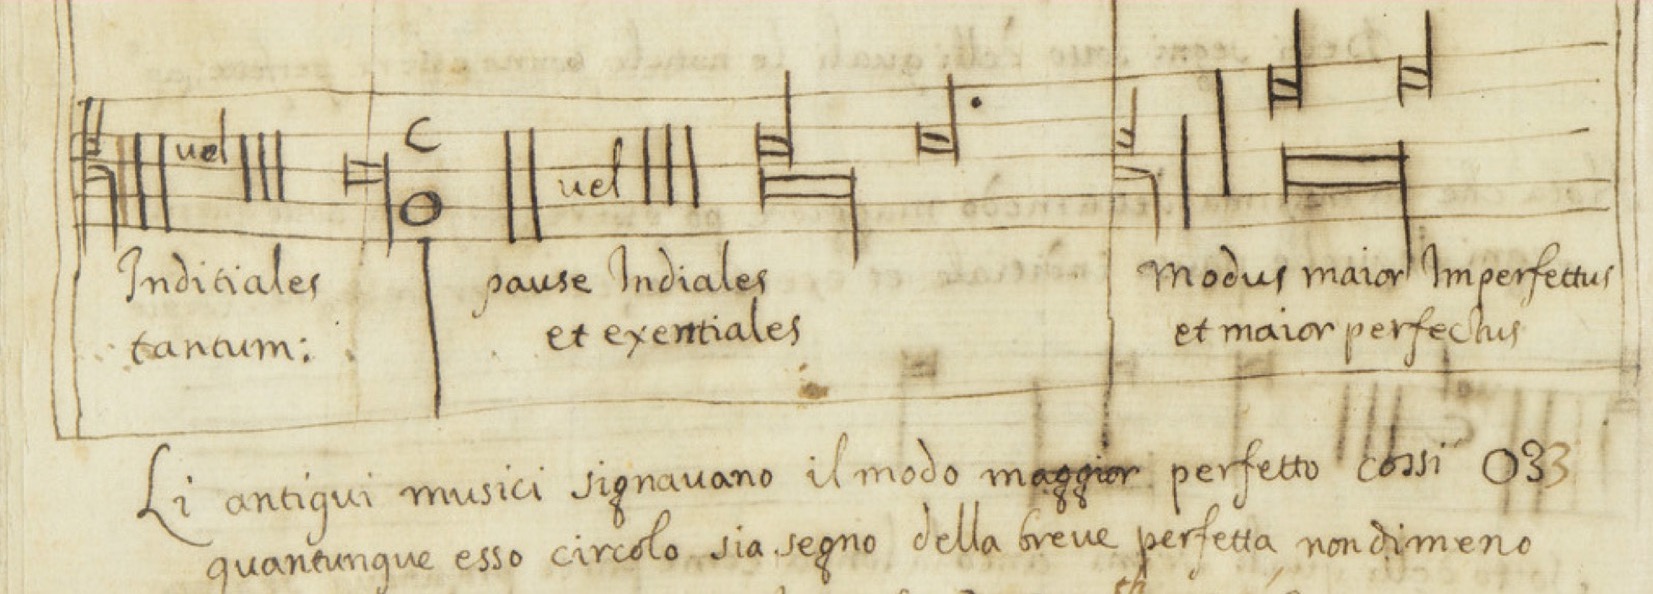 uel
C
uel
Inditiales pause Indiales Modus maior Imperfectus
tantum: et exentiales et maior perfectus
Li antigui musici signauano il modo maggior perfetto cossi O33
quantunque esso circolo sia segno della breue perfetta nondimeno